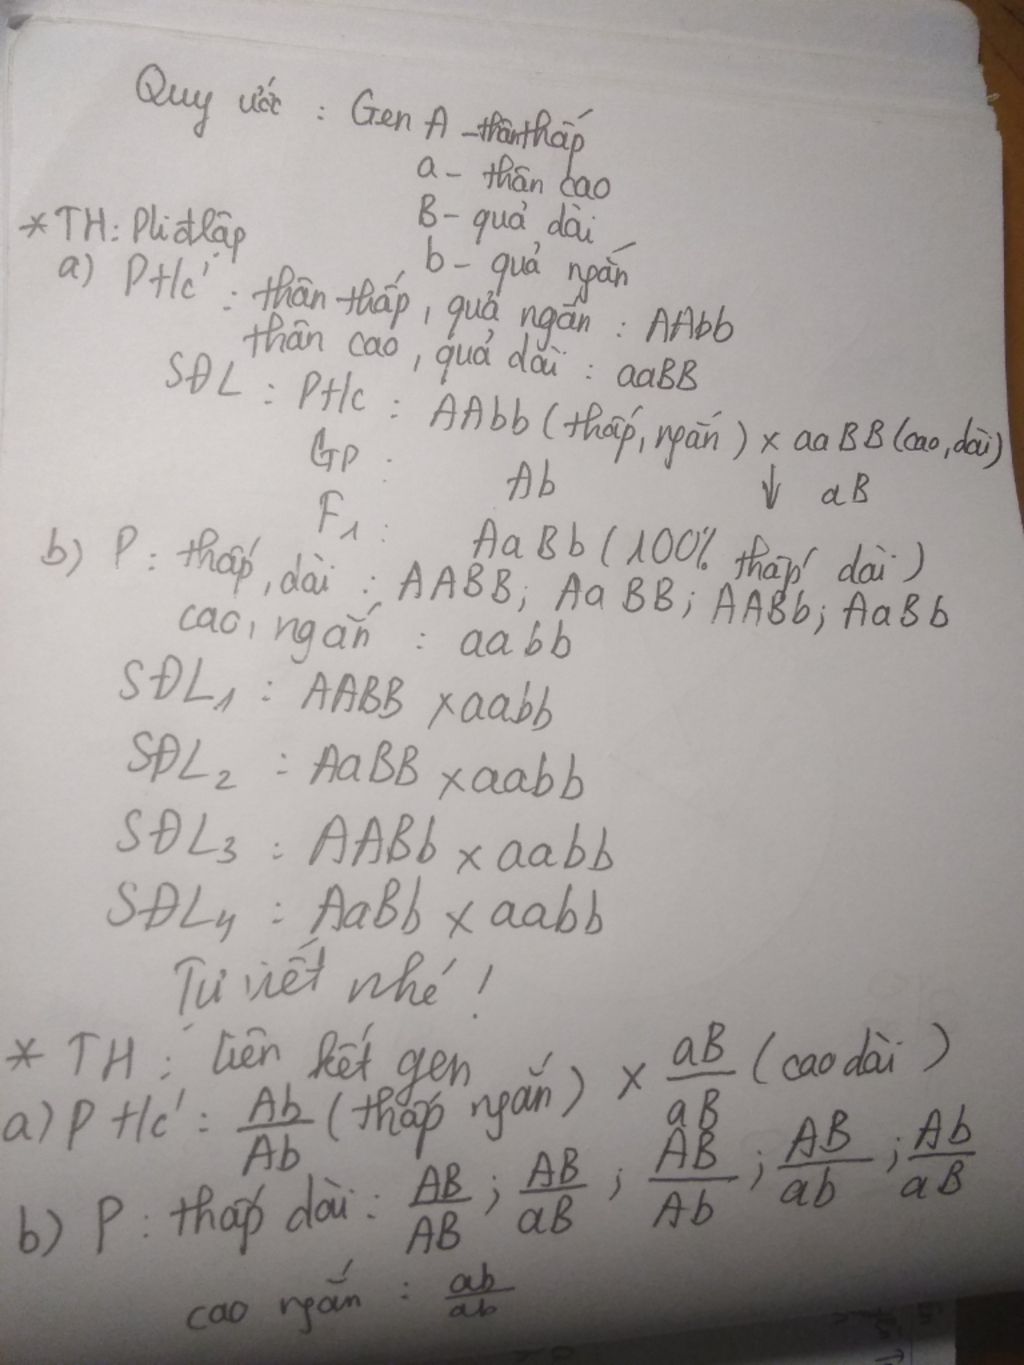 Quy ước : Gen A - thân thấp
a - thân cao
B - quả dài
b - quả ngắn
* TH: Pli độc lập
a) Pt/c : thân thấp, quả ngắn : AAbb
thân cao, quả dài : aaBB
SĐL : Pt/c : AAbb (thấp, ngắn) x aaBB (cao, dài)
Gp : Ab ↓ aB
F1 : AaBb (100% thấp dài)
b) P : thấp, dài : AABB; AaBB; AABb; AaBb
cao, ngắn : aabb
SĐL1 : AABB x aabb
SĐL2 : AaBB x aabb
SĐL3 : AABb x aabb
SĐL4 : AaBb x aabb
Tự viết nhé !
* TH : liên kết gen
a) P t/c : Ab/Ab (thấp ngắn) x aB/aB (cao dài)
b) P : thấp dài : AB/AB ; AB/aB ; AB/Ab ; AB/ab ; Ab/aB
cao ngắn : ab/ab